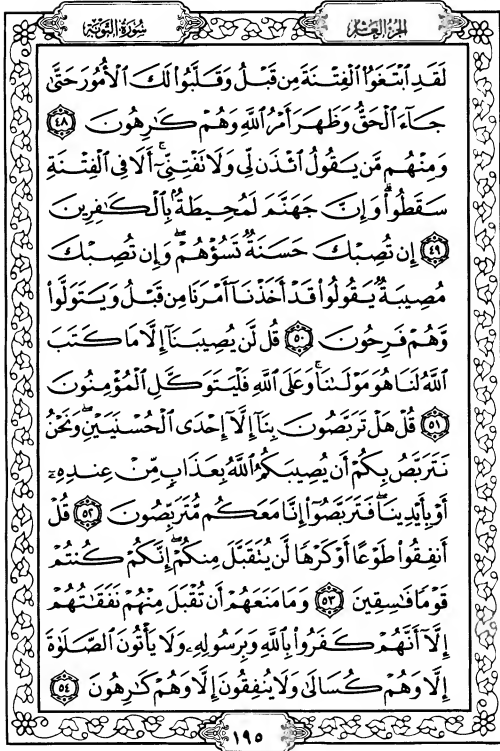 سُورَةُ التَّوْبَةِ
الجُزءُ العَاشِرُ
لَقَدِ ٱبْتَغَوُا۟ ٱلْفِتْنَةَ مِن قَبْلُ وَقَلَّبُوا۟ لَكَ ٱلْأُمُورَ حَتَّىٰ
جَآءَ ٱلْحَقُّ وَظَهَرَ أَمْرُ ٱللَّهِ وَهُمْ كَـٰرِهُونَ ٤٨
وَمِنْهُم مَّن يَقُولُ ٱئْذَن لِّى وَلَا تَفْتِنِّىٓ ۚ أَلَا فِى ٱلْفِتْنَةِ
سَقَطُوا۟ ۗ وَإِنَّ جَهَنَّمَ لَمُحِيطَةٌۢ بِٱلْكَـٰفِرِينَ
٤٩ إِن تُصِبْكَ حَسَنَةٌ تَسُؤْهُمْ ۖ وَإِن تُصِبْكَ
مُصِيبَةٌ يَقُولُوا۟ قَدْ أَخَذْنَآ أَمْرَنَا مِن قَبْلُ وَيَتَوَلَّوا۟
وَّهُمْ فَرِحُونَ ٥٠ قُل لَّن يُصِيبَنَآ إِلَّا مَا كَتَبَ
ٱللَّهُ لَنَا هُوَ مَوْلَىٰنَا ۚ وَعَلَى ٱللَّهِ فَلْيَتَوَكَّلِ ٱلْمُؤْمِنُونَ
٥١ قُلْ هَلْ تَرَبَّصُونَ بِنَآ إِلَّآ إِحْدَى ٱلْحُسْنَيَيْنِ ۖ وَنَحْنُ
نَتَرَبَّصُ بِكُمْ أَن يُصِيبَكُمُ ٱللَّهُ بِعَذَابٍ مِّنْ عِندِهِۦٓ
أَوْ بِأَيْدِينَا ۖ فَتَرَبَّصُوٓا۟ إِنَّا مَعَكُم مُّتَرَبِّصُونَ ٥٢ قُلْ
أَنفِقُوا۟ طَوْعًا أَوْ كَرْهًا لَّن يُتَقَبَّلَ مِنكُمْ ۖ إِنَّكُمْ كُنتُمْ
قَوْمًا فَـٰسِقِينَ ٥٣ وَمَا مَنَعَهُمْ أَن تُقْبَلَ مِنْهُمْ نَفَقَـٰتُهُمْ
إِلَّآ أَنَّهُمْ كَفَرُوا۟ بِٱللَّهِ وَبِرَسُولِهِۦ وَلَا يَأْتُونَ ٱلصَّلَوٰةَ
إِلَّا وَهُمْ كُسَالَىٰ وَلَا يُنفِقُونَ إِلَّا وَهُمْ كَـٰرِهُونَ ٥٤
١٩٥